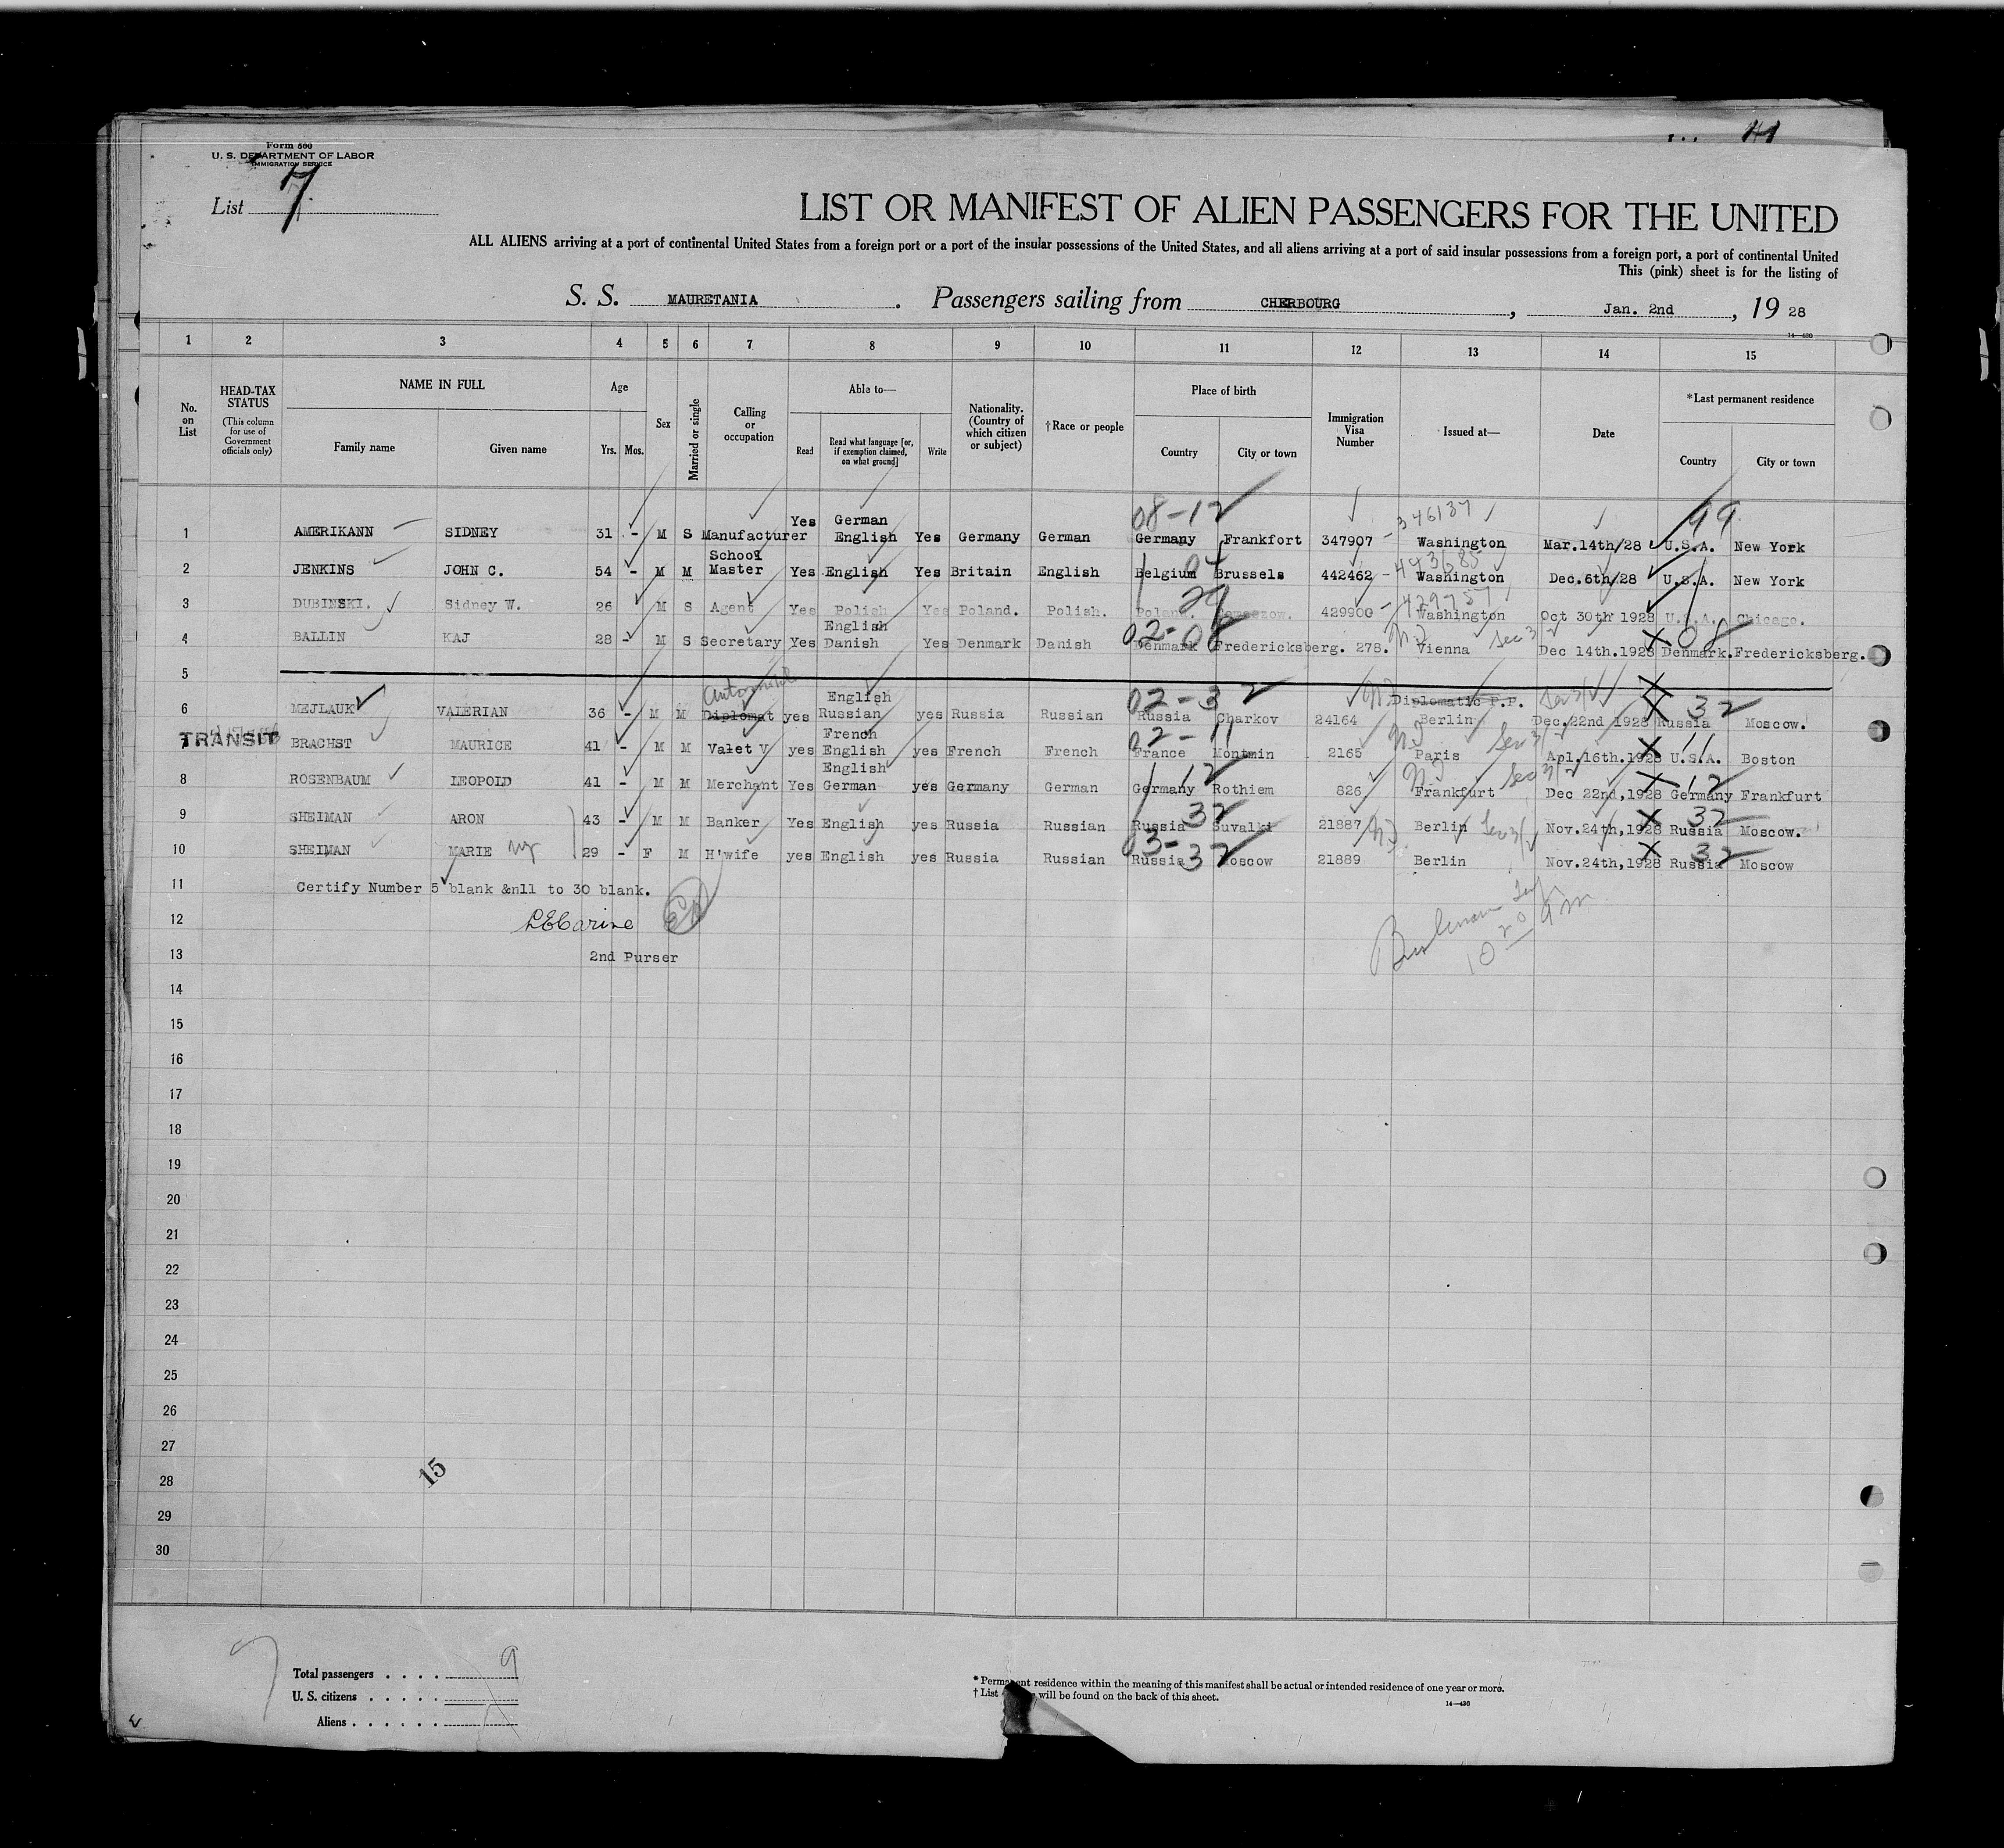 Form 500
U. S. DEPARTMENT OF LABOR
IMMIGRATION SERVICE
List 7
LIST OR MANIFEST OF ALIEN PASSENGERS FOR THE UNITED
ALL ALIENS arriving at a port of continental United States from a foreign port or a port of the insular possessions of the United States, and all aliens arriving at a port of said insular possessions from a foreign port, a port of continental United
This (pink) sheet is for the listing of
S. S. MAURETANIA . Passengers sailing from CHERBOURG , Jan. 2nd , 19 28
14—430
1 2 3 4 5 6 7 8 9 10 11 12 13 14 15
No. on List
HEAD-TAX STATUS
(This column for use of Government officials only)
NAME IN FULL
Family name Given name
Age
Yrs. Mos.
Sex
Married or single
Calling or occupation
Able to—
Read Read what language [or, if exemption claimed, on what ground] Write
Nationality. (Country of which citizen or subject)
†Race or people
Place of birth
Country City or town
Immigration Visa Number
Issued at—
Date
*Last permanent residence
Country City or town
08-12 346137 99
1 AMERIKANN SIDNEY 31 - M S Manufacturer Yes German English Yes Germany German Germany Frankfort 347907 - Washington Mar.14th/28 U.S.A. New York
2 JENKINS JOHN C. 54 - M M School Master Yes English Yes Britain English Belgium Brussels 442462 - 443685 Washington Dec.6th/28 U.S.A. New York
3 DUBINSKI. Sidney W. 26 M S Agent Yes Polish Yes Poland. Polish. 29 429900 - 429757 Washington Oct 30th 1928 U.S.A. Chicago.
4 BALLIN KAJ 28 - M S Secretary Yes English Danish Yes Denmark Danish 02-08 Denmark Fredericksberg. 278. Vienna Sec 3/2 Dec 14th.1928 08 Denmark. Fredericksberg.
5
6 MEJLAUK VALERIAN 36 - M M Diplomat yes English Russian yes Russia Russian 02-32 Russia Charkov 24164 Diplomatic P.P. Berlin Dec.22nd 1928 32 Russia Moscow.
TRANSIT
7 BRACHST MAURICE 41 - M M Valet V yes French English yes French French 02-11 France Montmin 2165 Paris Apl.16th.1928 11 U.S.A. Boston
8 ROSENBAUM LEOPOLD 41 - M M Merchant Yes English German yes Germany German 12 Germany Rothiem 826 Frankfurt Sec 3/2 Dec 22nd,1928 12 Germany Frankfurt
9 SHEIMAN ARON 43 - M M Banker Yes English yes Russia Russian 32 Russia Suvalki 21887 Berlin Nov.24th,1928 32 Russia Moscow.
10 SHEIMAN MARIE 29 - F M H'wife yes English yes Russia Russian 03-32 Russia Moscow 21889 Berlin Nov.24th,1928 32 Russia Moscow
11 Certify Number 5 blank &nll to 30 blank.
12
13 2nd Purser
14
15
16
17
18
19
20
21
22
23
24
25
26
27
28
15
29
30
Total passengers . . . . 9
U. S. citizens . . . . .
Aliens . . . . . .
* Permanent residence within the meaning of this manifest shall be actual or intended residence of one year or more.
† List will be found on the back of this sheet.
14—430